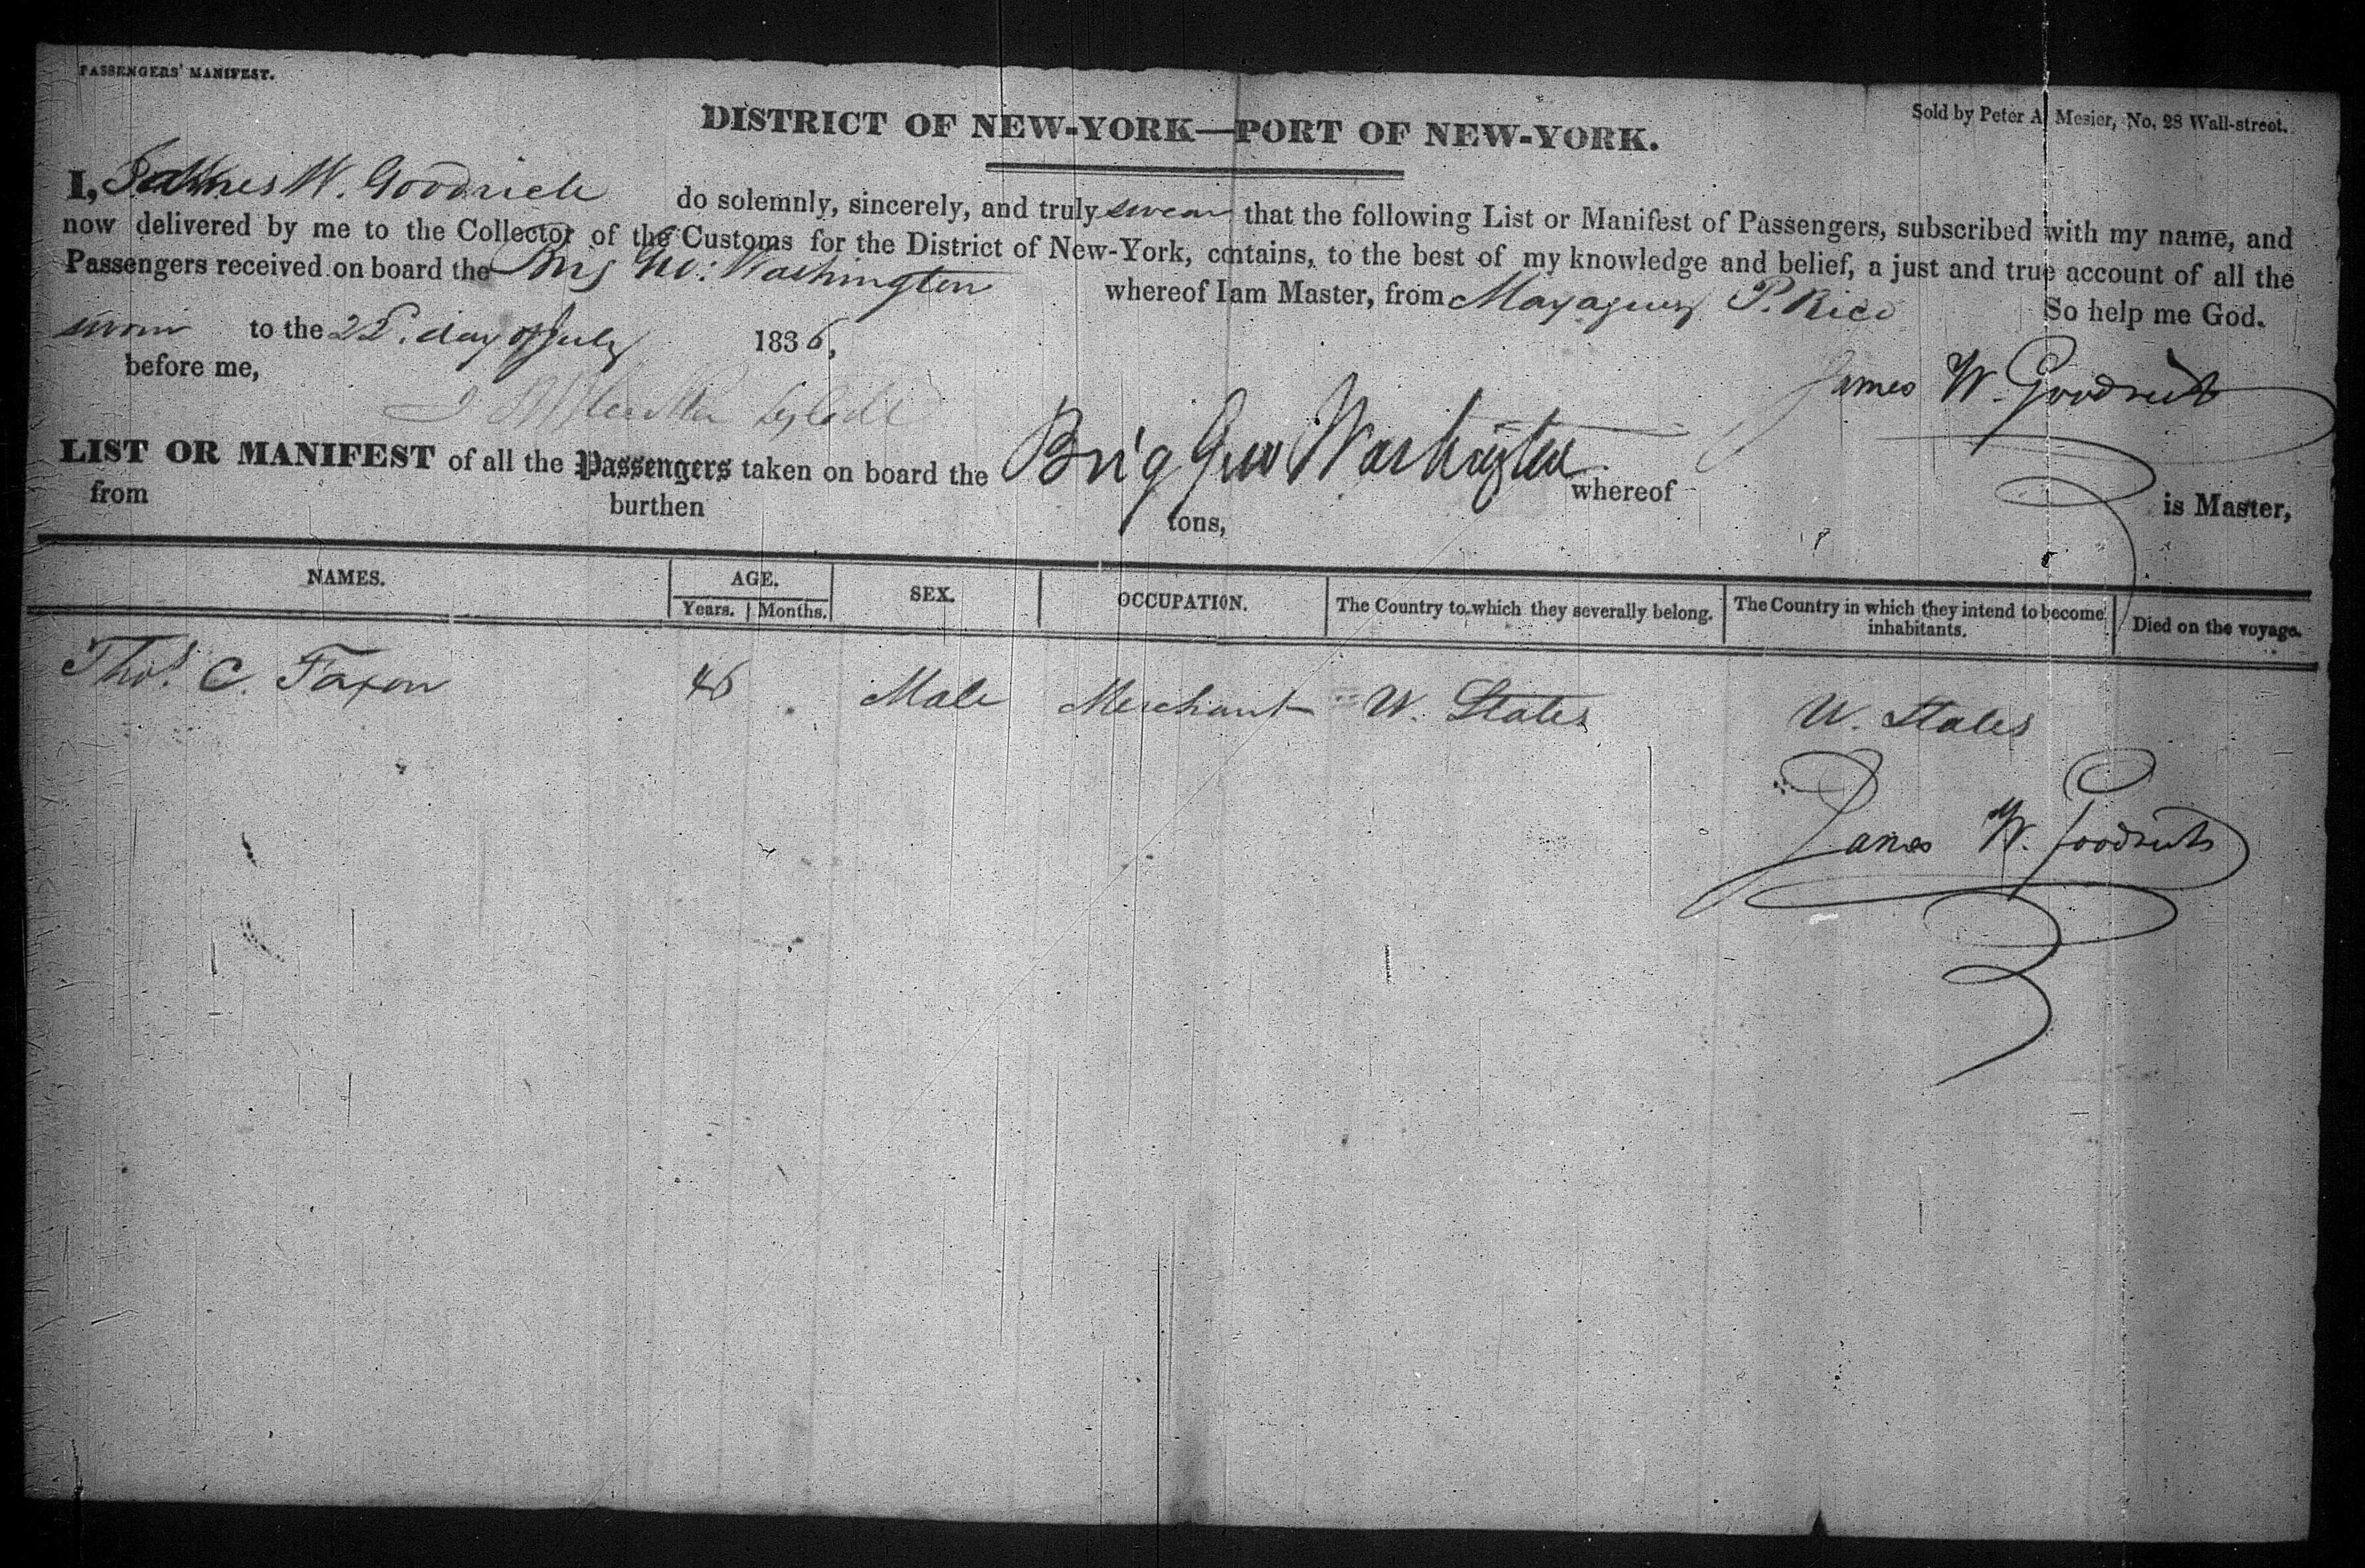 PASSENGERS' MANIFEST.
Sold by Peter A. Mesier, No. 28 Wall-street.
DISTRICT OF NEW-YORK—PORT OF NEW-YORK.
I, James W. Goodrich do solemnly, sincerely, and truly swear that the following List or Manifest of Passengers, subscribed with my name, and
now delivered by me to the Collector of the Customs for the District of New-York, contains, to the best of my knowledge and belief, a just and true account of all the
Passengers received on board the Brig Geo: Washington whereof I am Master, from Mayaguez P. Rico So help me God.
sworn to the day of July 1836,
before me,
James W. Goodrich
LIST OR MANIFEST of all the Passengers taken on board the Brig Geo Washington whereof is Master,
from burthen tons,
NAMES. AGE. SEX. OCCUPATION. The Country to which they severally belong. The Country in which they intend to become inhabitants. Died on the voyage.
Years. Months.
Thos. C. Faxon Male Merchant U. States U. States
James W. Goodrich